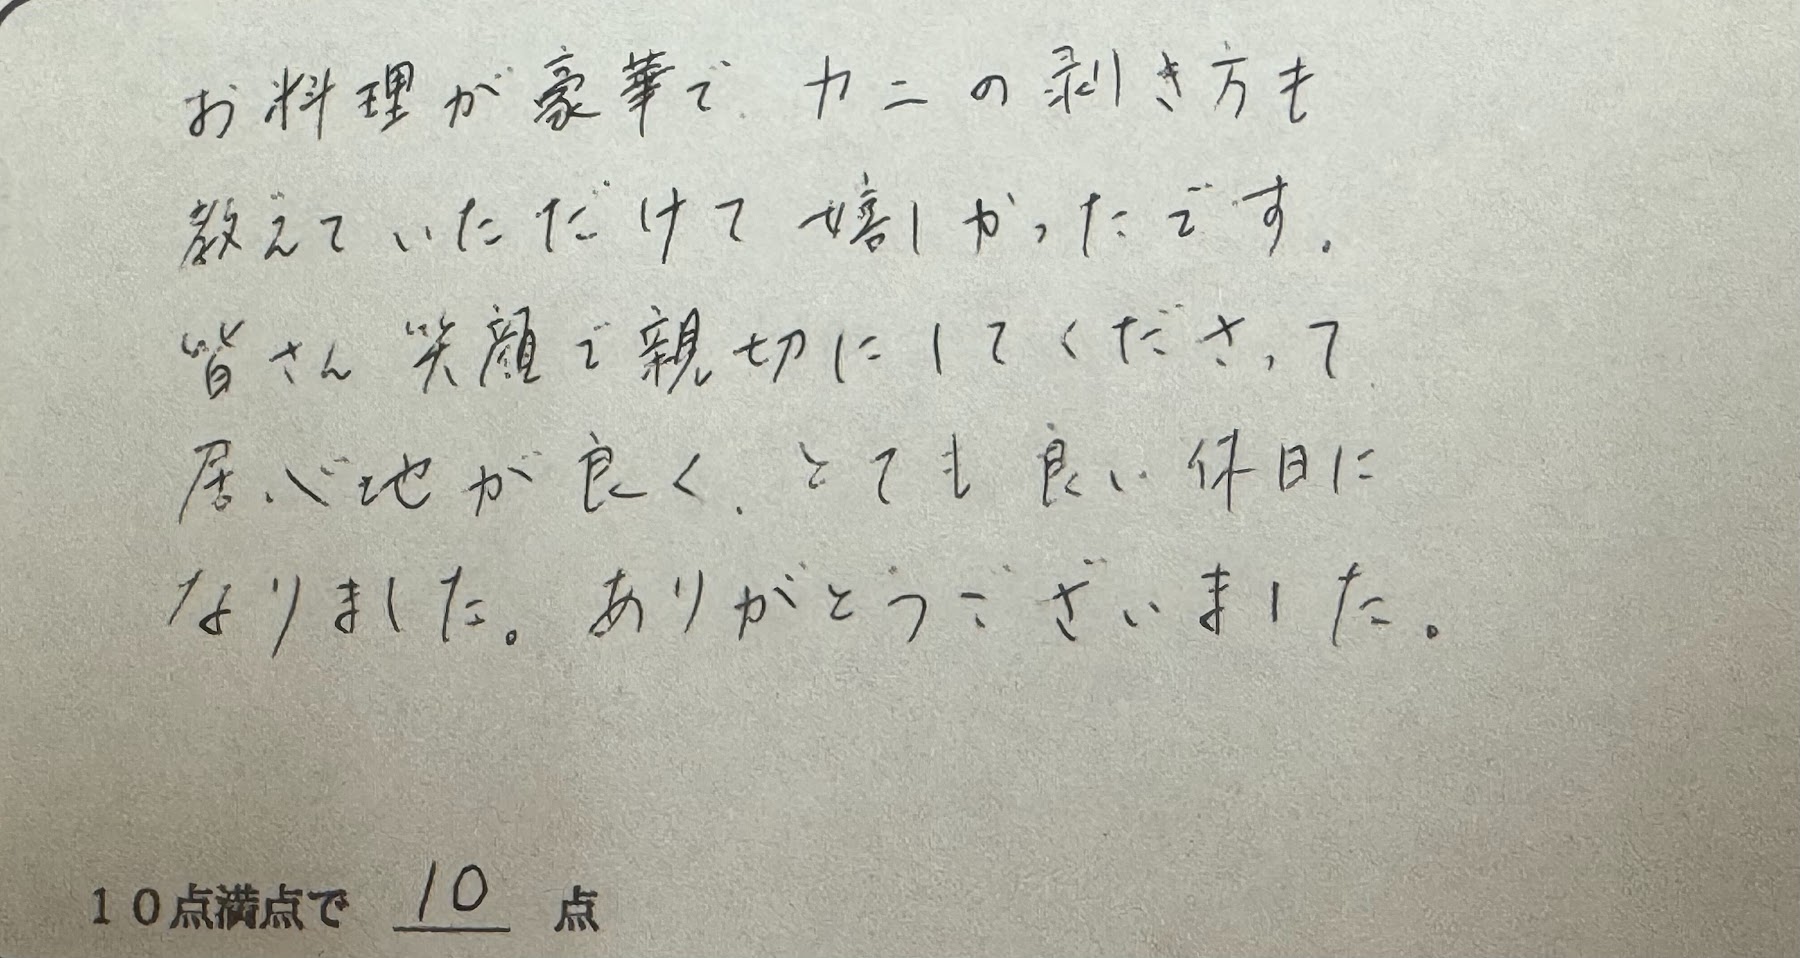 お料理が豪華で、カニの剥き方も
教えていただけて嬉しかったです。
皆さん笑顔で親切にしてくださって、
居心地が良く、とても良い休日に
なりました。ありがとうございました。
10点満点で 10 点